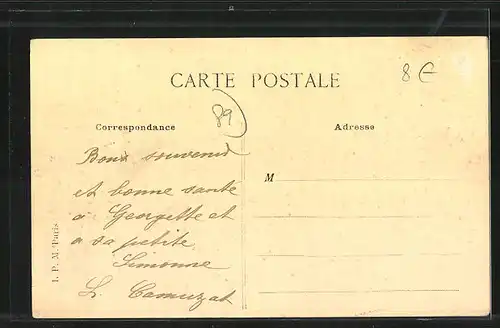 CARTE POSTALE
8€
89
Correspondance
Adresse
Bons souvenirs
et bonne santé
à Georgette et
a sa petite
Simonne
L. Camuzat
M
I. P. M. Paris